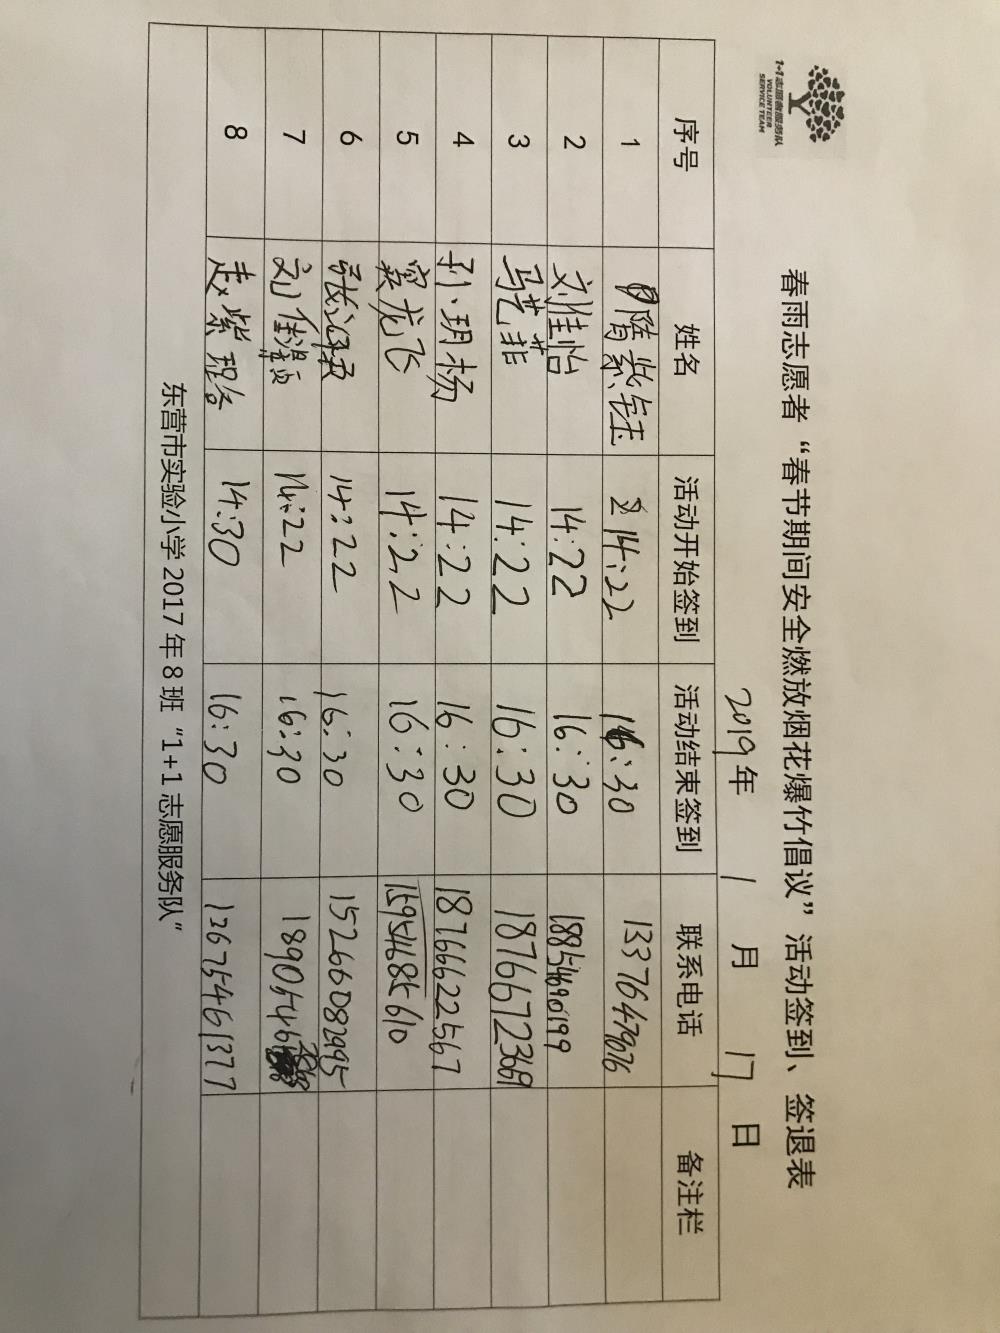 1+1志愿者服务队
VOLUNTEER
SERVICE TEAM
春雨志愿者“春节期间安全燃放烟花爆竹倡议”活动签到、签退表
2019年 1 月 17 日
序号 姓名 活动开始签到 活动结束签到 联系电话 备注栏
1 隋紫钰 14:22 16:30 13376479076
2 刘佳怡 14:22 16:30 18854690199
3 马艺菲 14:22 16:30 18766723669
4 孙玥杨 14:22 16:30 18766622567
5 窦龙飞 14:22 16:30 15954685610
6 张 14:22 16:30 15266082995
7 刘佳 14:22 16:30
8 赵紫 14:30 16:30
东营市实验小学 2017 年 8 班“1+1 志愿服务队”